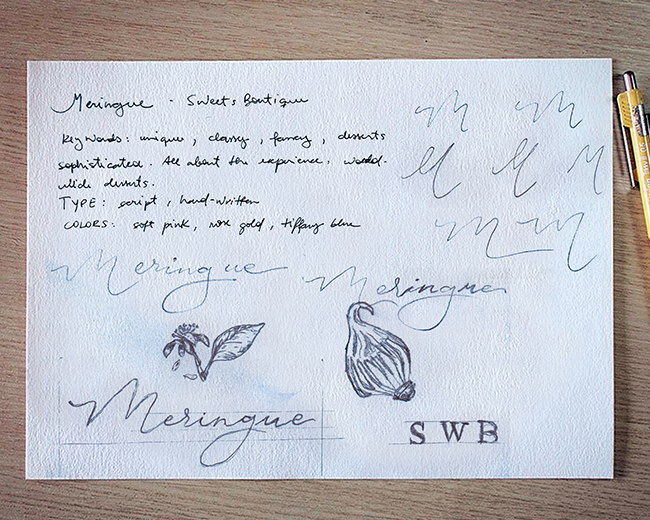 Meringue - Sweets Boutique
Key words: unique, classy, fancy, desserts
sophisticated. All about the experience. world-
wide desserts.
TYPE: script, hand-written
COLORS: soft pink, rose gold, tiffany blue
M M
M M M
M M
Meringue Meringue
Meringue
SWB